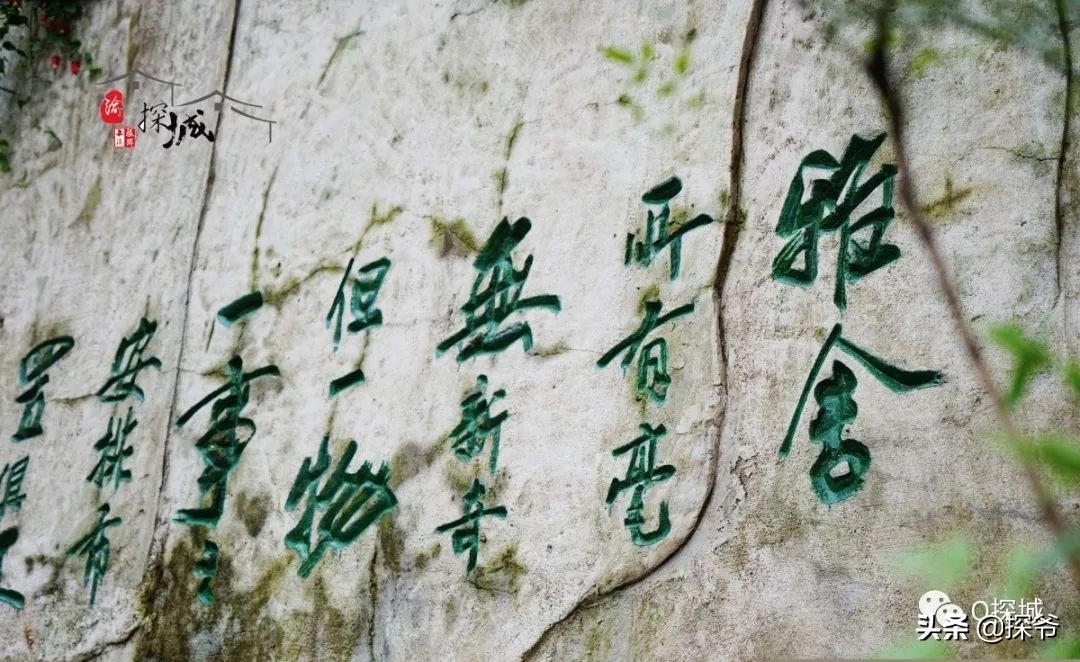 雅舍
所有毫
無新奇
但一物
一事之
安排布
置俱
渝
探城
Q探城
头条 @探爷